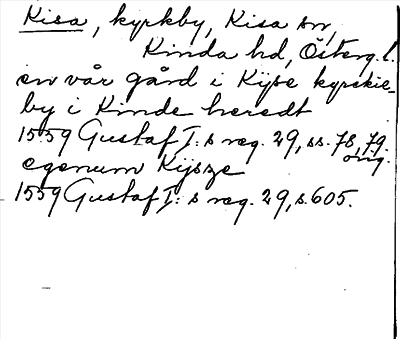 Kisa, kyrkby, Kisa sn,
Kinda hd, Österg. l.
en vår gård i Kijse kyrckie-
by i Kinde heredt
1559 Gustaf I:s reg. 29, ss. 78, 79.
orig.
egenum Kijsze
1559 Gustaf I:s reg. 29, s. 605.